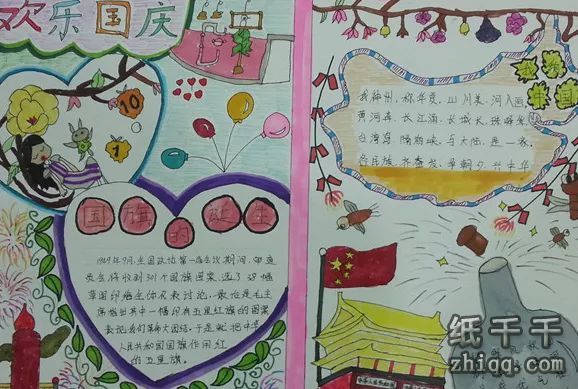 欢乐国庆
10
1
国旗的诞生
1949年9月,全国政协第一届会议期间,筹
会将收到
幅国旗图案,选了38幅
草图印
代表讨论,最后是毛主
席
其中一幅印有五星红旗的图案
表现我们革命大团结,于是就把中华
人民共和国国旗作用红
的五星旗。
我神州,称华夏,山川美,可入画
黄河奔,长江涌,长城长,珠峰
台湾岛,隔海峡,与大陆,是一家
各民族,齐奋发,争朝夕,兴中华
中华人民共和国
纸千千
zhiqq.com